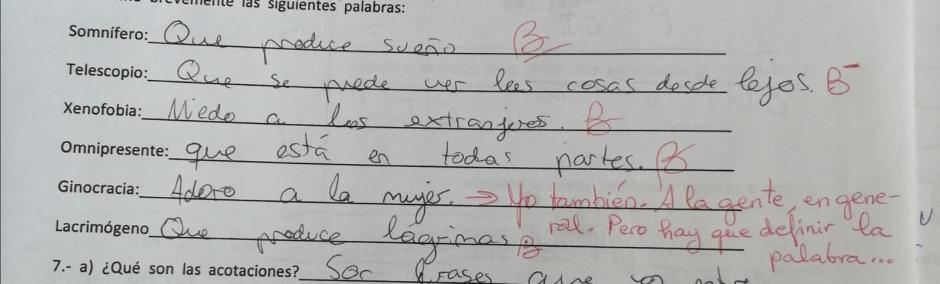 brevemente las siguientes palabras:
Somnífero: Que produce sueño B
Telescopio: Que se puede ver las cosas desde lejos. B-
Xenofobia: Miedo a los extranjeros. B
Omnipresente: que está en todas partes. B
Ginocracia: Adoro a la mujer. → Yo también. A la gente, en gene-
ral. Pero hay que definir la
palabra...
Lacrimógeno Que produce lágrimas B
7.- a) ¿Qué son las acotaciones? Son frases que